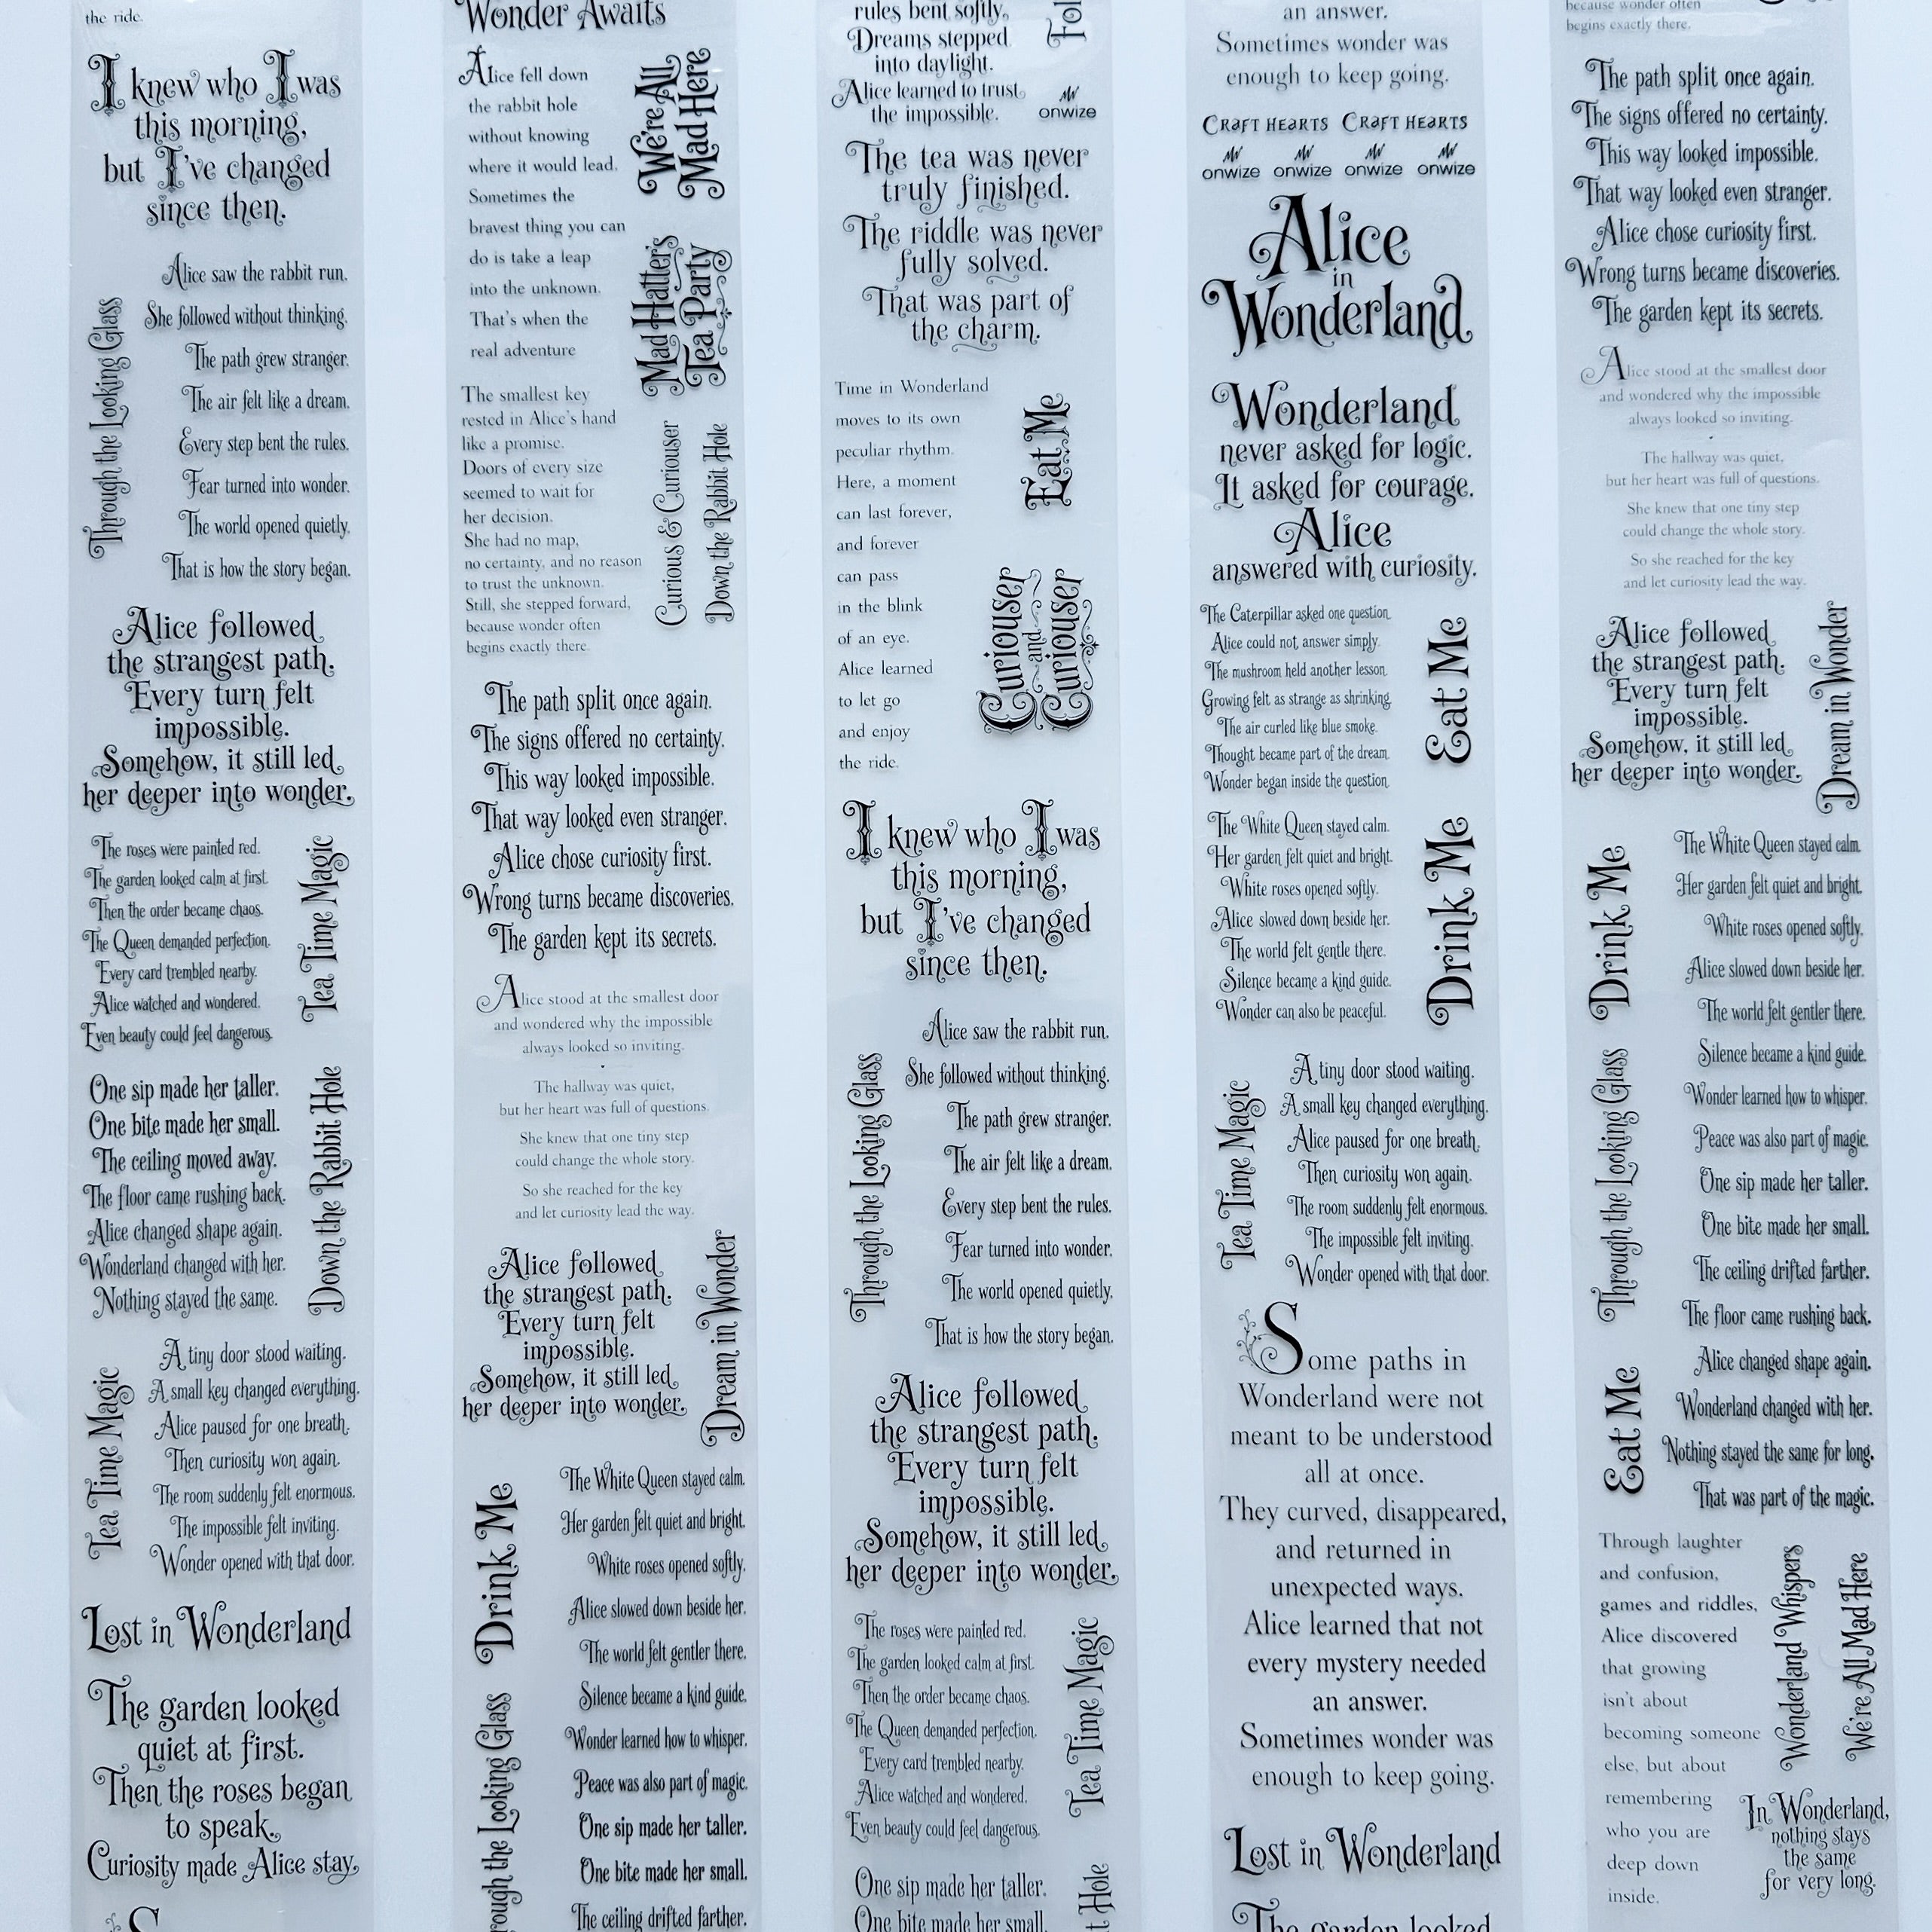 the ride.
I knew who I was
this morning,
but I've changed
since then.
Through the Looking Glass
Alice saw the rabbit run.
She followed without thinking.
The path grew stranger.
The air felt like a dream.
Every step bent the rules.
Fear turned into wonder.
The world opened quietly.
That is how the story began.
Alice followed
the strangest path.
Every turn felt
impossible.
Somehow, it still led
her deeper into wonder.
The roses were painted red.
The garden looked calm at first.
Then the order became chaos.
The Queen demanded perfection.
Every card trembled nearby.
Alice watched and wondered.
Even beauty could feel dangerous.
Tea Time Magic
One sip made her taller.
One bite made her small.
The ceiling moved away.
The floor came rushing back.
Alice changed shape again.
Wonderland changed with her.
Nothing stayed the same.
Down the Rabbit Hole
Tea Time Magic
A tiny door stood waiting.
A small key changed everything.
Alice paused for one breath.
Then curiosity won again.
The room suddenly felt enormous.
The impossible felt inviting.
Wonder opened with that door.
Lost in Wonderland
The garden looked
quiet at first.
Then the roses began
to speak.
Curiosity made Alice stay.
S
Wonder Awaits
Alice fell down
the rabbit hole
without knowing
where it would lead.
Sometimes the
bravest thing you can
do is take a leap
into the unknown.
That's when the
real adventure
We're All
Mad Here
Mad Hatter's
Tea Party
The smallest key
rested in Alice's hand
like a promise.
Doors of every size
seemed to wait for
her decision.
She had no map,
no certainty, and no reason
to trust the unknown.
Still, she stepped forward,
because wonder often
begins exactly there.
Curious & Curiouser
Down the Rabbit Hole
The path split once again.
The signs offered no certainty.
This way looked impossible.
That way looked even stranger.
Alice chose curiosity first.
Wrong turns became discoveries.
The garden kept its secrets.
Alice stood at the smallest door
and wondered why the impossible
always looked so inviting.
The hallway was quiet,
but her heart was full of questions.
She knew that one tiny step
could change the whole story.
So she reached for the key
and let curiosity lead the way.
Alice followed
the strangest path.
Every turn felt
impossible.
Somehow, it still led
her deeper into wonder.
Dream in Wonder
Drink Me
rough the Looking Glass
The White Queen stayed calm.
Her garden felt quiet and bright.
White roses opened softly.
Alice slowed down beside her.
The world felt gentler there.
Silence became a kind guide.
Wonder learned how to whisper.
Peace was also part of magic.
One sip made her taller.
One bite made her small.
The ceiling drifted farther.
rules bent softly,
Dreams stepped
into daylight.
Alice learned to trust
the impossible.
Fol
onwize
The tea was never
truly finished.
The riddle was never
fully solved.
That was part of
the charm.
Time in Wonderland
moves to its own
peculiar rhythm.
Here, a moment
can last forever,
and forever
can pass
in the blink
of an eye.
Alice learned
to let go
and enjoy
the ride.
Eat Me
Curiouser
and
Curiouser
I knew who I was
this morning,
but I've changed
since then.
Through the Looking Glass
Alice saw the rabbit run.
She followed without thinking.
The path grew stranger.
The air felt like a dream.
Every step bent the rules.
Fear turned into wonder.
The world opened quietly.
That is how the story began.
Alice followed
the strangest path.
Every turn felt
impossible.
Somehow, it still led
her deeper into wonder.
The roses were painted red.
The garden looked calm at first.
Then the order became chaos.
The Queen demanded perfection.
Every card trembled nearby.
Alice watched and wondered.
Even beauty could feel dangerous.
Tea Time Magic
One sip made her taller.
One bite made her small.
t Hole
an answer.
Sometimes wonder was
enough to keep going.
CRAFT HEARTS CRAFT HEARTS
onwize onwize onwize onwize
Alice
in
Wonderland
Wonderland
never asked for logic.
It asked for courage.
Alice
answered with curiosity.
The Caterpillar asked one question.
Alice could not answer simply.
The mushroom held another lesson.
Growing felt as strange as shrinking.
The air curled like blue smoke.
Thought became part of the dream.
Wonder began inside the question.
Eat Me
The White Queen stayed calm.
Her garden felt quiet and bright.
White roses opened softly.
Alice slowed down beside her.
The world felt gentle there.
Silence became a kind guide.
Wonder can also be peaceful.
Drink Me
Tea Time Magic
A tiny door stood waiting.
A small key changed everything.
Alice paused for one breath.
Then curiosity won again.
The room suddenly felt enormous.
The impossible felt inviting.
Wonder opened with that door.
Some paths in
Wonderland were not
meant to be understood
all at once.
They curved, disappeared,
and returned in
unexpected ways.
Alice learned that not
every mystery needed
an answer.
Sometimes wonder was
enough to keep going.
Lost in Wonderland
The garden looked
because wonder often
begins exactly there.
The path split once again.
The signs offered no certainty.
This way looked impossible.
That way looked even stranger.
Alice chose curiosity first.
Wrong turns became discoveries.
The garden kept its secrets.
Alice stood at the smallest door
and wondered why the impossible
always looked so inviting.
The hallway was quiet,
but her heart was full of questions.
She knew that one tiny step
could change the whole story.
So she reached for the key
and let curiosity lead the way.
Alice followed
the strangest path.
Every turn felt
impossible.
Somehow, it still led
her deeper into wonder.
Dream in Wonder
Drink Me
Through the Looking Glass
Eat Me
The White Queen stayed calm.
Her garden felt quiet and bright.
White roses opened softly.
Alice slowed down beside her.
The world felt gentler there.
Silence became a kind guide.
Wonder learned how to whisper.
Peace was also part of magic.
One sip made her taller.
One bite made her small.
The ceiling drifted farther.
The floor came rushing back.
Alice changed shape again.
Wonderland changed with her.
Nothing stayed the same for long.
That was part of the magic.
Through laughter
and confusion,
games and riddles,
Alice discovered
that growing
isn't about
becoming someone
else, but about
remembering
who you are
deep down
inside.
Wonderland Whispers
We're All Mad Here
In Wonderland,
nothing stays
the same
for very long.